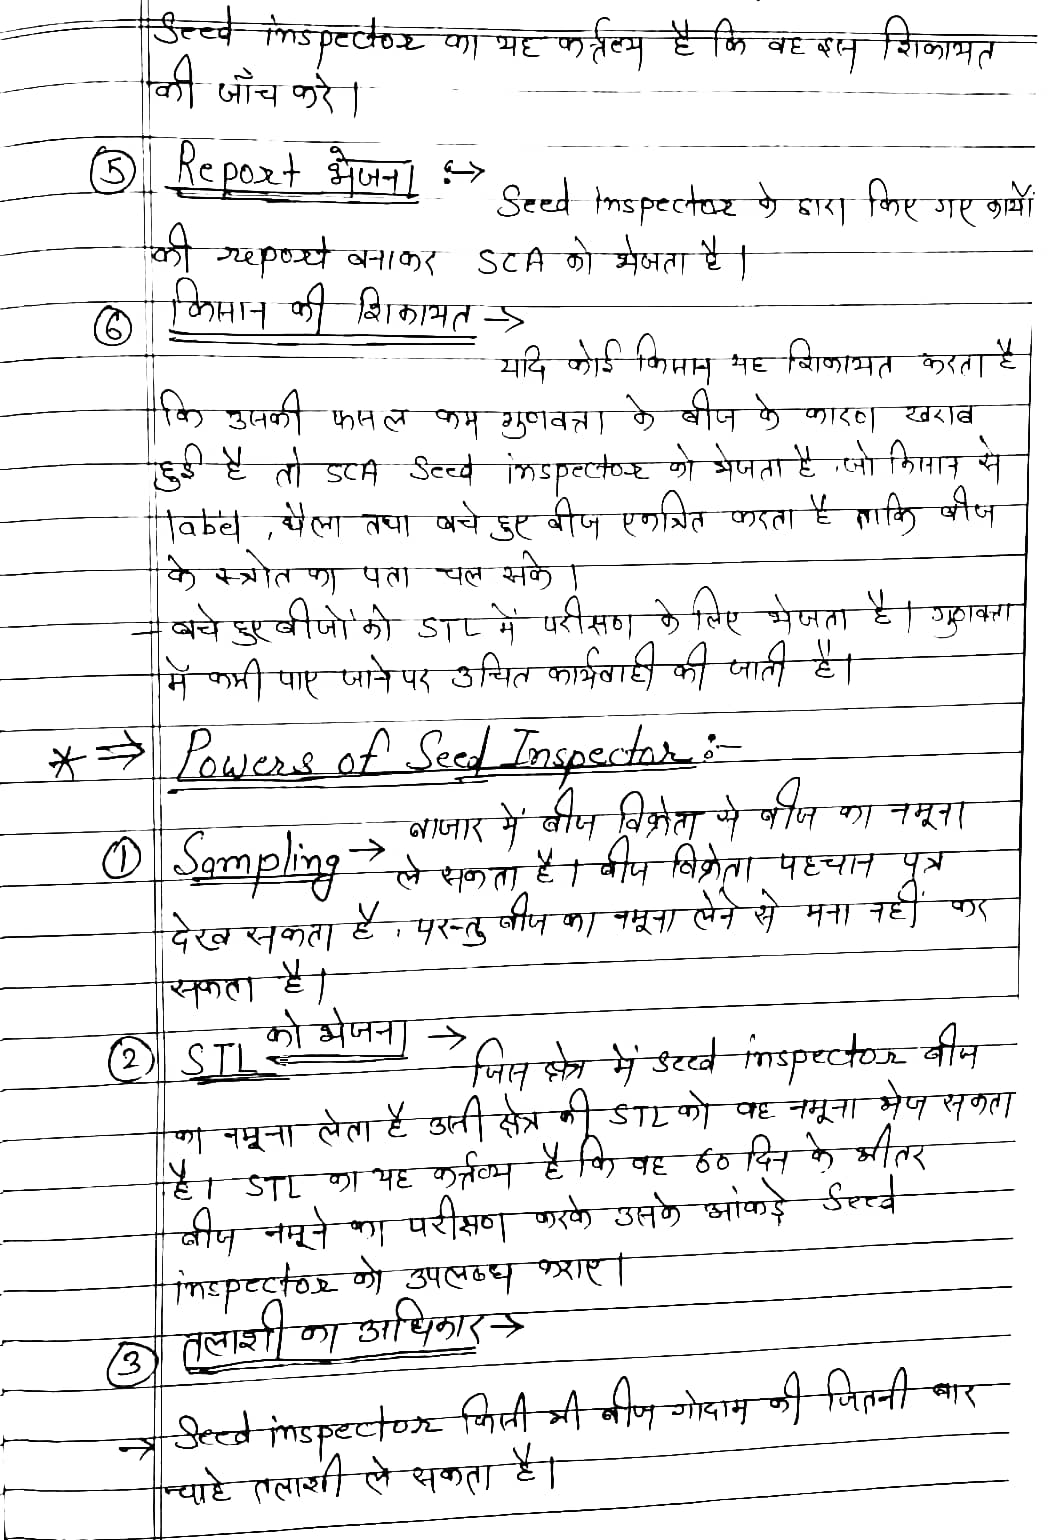 Seed inspector का यह कर्तव्य है कि वह इस शिकायत
की जाँच करे।
⑤ Report भेजना :→
Seed Inspector के द्वारा किए गए कार्यों
की report बनाकर SCA को भेजता है।
⑥ किसान की शिकायत →
यदि कोई किसान यह शिकायत करता है
कि उसकी फसल कम गुणवत्ता के बीज के कारण खराब
हुई है तो SCA Seed inspector को भेजता है, जो किसान से
label, थैला तथा बचे हुए बीज एकत्रित करता है ताकि बीज
के स्त्रोत का पता चल सके।
→ बचे हुए बीजों को STL में परीक्षण के लिए भेजता है। गुणवत्ता
में कमी पाए जाने पर उचित कार्यवाही की जाती है।
* ⇒ Powers of Seed Inspector :-
① Sampling → बाजार में बीज विक्रेता से बीज का नमूना
ले सकता है। बीज विक्रेता पहचान पत्र
देख सकता है, परन्तु बीज का नमूना लेने से मना नहीं कर
सकता है।
② STL को भेजना →
जिस क्षेत्र में seed inspector बीज
का नमूना लेता है उसी क्षेत्र की STL को वह नमूना भेज सकता
है। STL का यह कर्त्तव्य है कि वह 60 दिन के भीतर
बीज नमूने का परीक्षण करके उसके आंकड़े Seed
inspector को उपलब्ध कराए।
③ तलाशी का अधिकार →
→ Seed inspector किसी भी बीज गोदाम की जितनी बार
चाहे तलाशी ले सकता है।